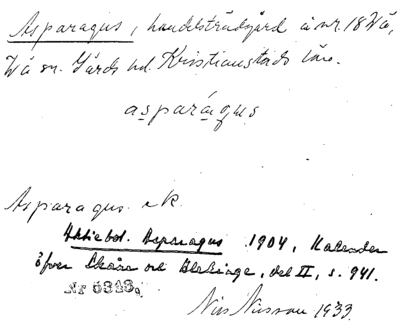 Asparagus, handelsträdgård å nr. 18 Vä,
Vä sn. Gärds hd. Kristianstads län.
asparágus
Asparagus rk.
Aktiebol. Asparagus 1904, Kalender
öfver Skåne och Blekinge, del II, s. 941.
Nr 5313,
Nils Nilsson 1933.